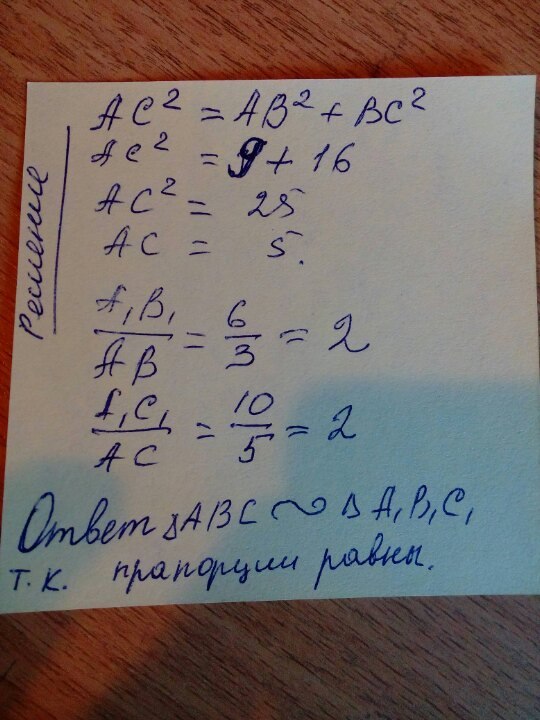 Решение
AC² = AB² + BC²
AC² = 9 + 16
AC² = 25
AC = 5.
A₁B₁/AB = 6/3 = 2
A₁C₁/AC = 10/5 = 2
Ответ ∆ABC ∾ ∆A₁B₁C₁
т.к. прапорции равны.